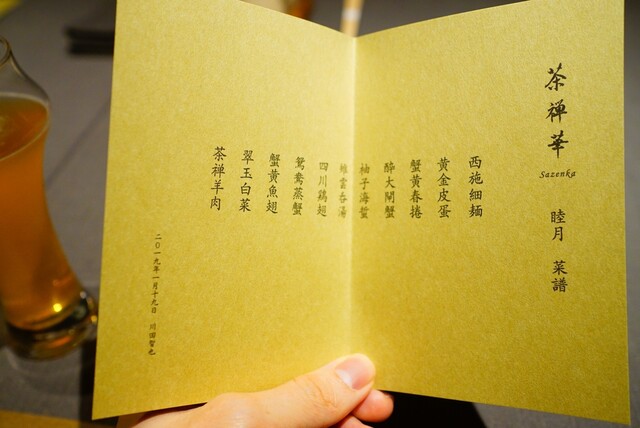 茶禅華
Sazenka
睦月 菜譜
西施細麺
黄金皮蛋
蟹黄春捲
酔大閘蟹
柚子海蜇
雉雲呑湯
四川鶏翅
鴛鴦蒸蟹
蟹黄魚翅
翠玉白菜
茶禅羊肉
二〇一九年一月十九日 川田智也